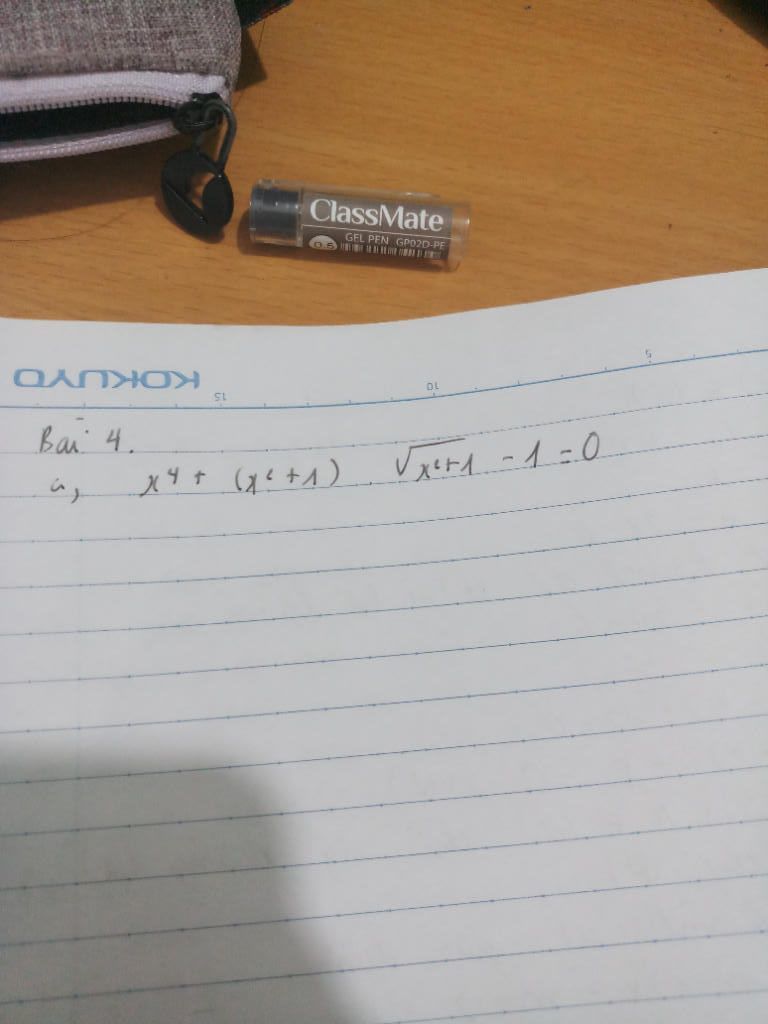 ClassMate
0.5 GEL PEN GP02D-PE
KOKUYO
5
10
15
Bài 4.
a, x⁴ + (x² + 1) √x²+1 - 1 = 0